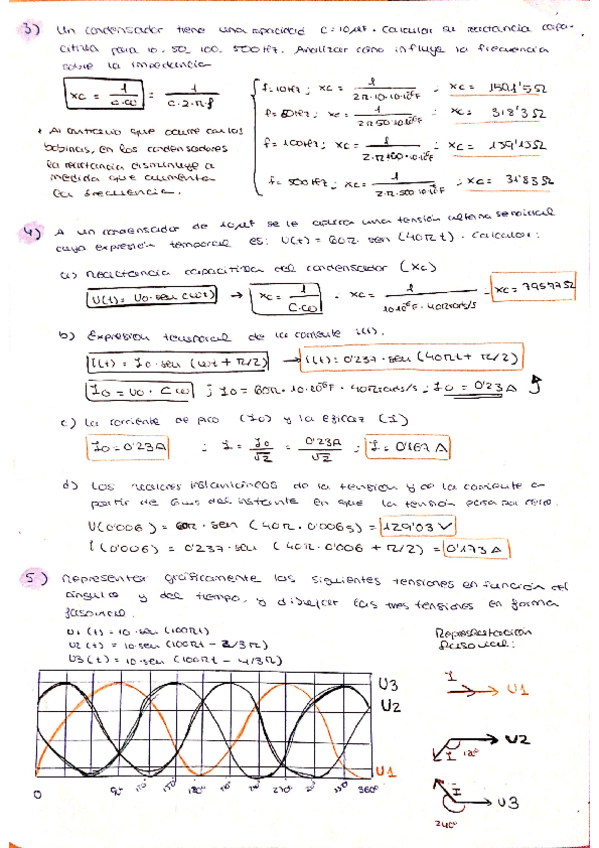 3) Un condensador tiene una capacidad C=10µF. Calcular su reactancia capa-
citiva para 10, 50, 100, 500 Hz. Analizar cómo influye la frecuencia
sobre la impedancia
Xc = 1/C·ω = 1/C·2·π·f
f=10Hz; Xc = 1/2π·10·10·10⁻⁶F = Xc = 1591'5Ω
f=50Hz; Xc = 1/2π·50·10⁻⁶F : Xc = 318'3Ω
f=100Hz; Xc = 1/2·π·100·10⁻⁶F = Xc = 159'15Ω
f=500Hz; Xc = 1/2·π·500·10⁻⁶F ; Xc = 31'83Ω
* Al contrario que ocurre con las
bobinas, en los condensadores
la reactancia disminuye a
medida que aumenta
la frecuencia.
4) A un condensador de 10µF se le aplica una tensión alterna senoidal
cuya expresión temporal es: U(t) = 60π·sen(40πt). Calcular:
a) Reactancia capacitiva del condensador (Xc)
U(t)=U0·sen(ωt) → Xc = 1/C·ω = Xc = 1/10·10⁻⁶F·40πrad/s = Xc = 795'77Ω
b) Expresión temporal de la corriente i(t).
I(t) = I0·sen(ωt + π/2) → I(t) = 0'237·sen(40πt + π/2)
I0 = U0·Cω ; I0 = 60π·10·10⁻⁶F·40πrad/s ; I0 = 0'23A
c) La corriente de pico (I0) y la eficaz (I)
I0=0'23A ; I = I0/√2 = 0'23A/√2 ; I = 0'167A
d) Los valores instantáneos de la tensión y de la corriente a
partir de 6ms del instante en que la tensión pasa por cero.
U(0'006) = 60π·sen(40π·0'006s) = 129'03V
i(0'006) = 0'237·sen(40π·0'006 + π/2) = 0'173A
5) Representar gráficamente las siguientes tensiones en función del
ángulo y del tiempo, y dibujar las tres tensiones en forma
fasorial.
U1(t) = 10·sen(100πt)
U2(t) = 10·sen(100πt - 2/3π)
U3(t) = 10·sen(100πt - 4/3π)
Representación
fasorial:
U3
U2
U1
0 360°
I U1
U2
I 120°
I U3
240°